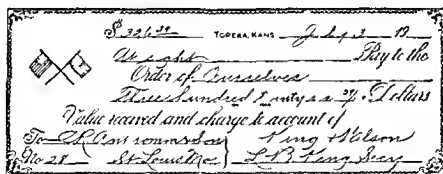 $ 326 39 TOPEKA, KANS July 3 19
At sight Pay to the
Order of Ourselves
Three Hundred Dollars
Value received and charge to account of
To
No 28 St Louis Mo L B King Secy